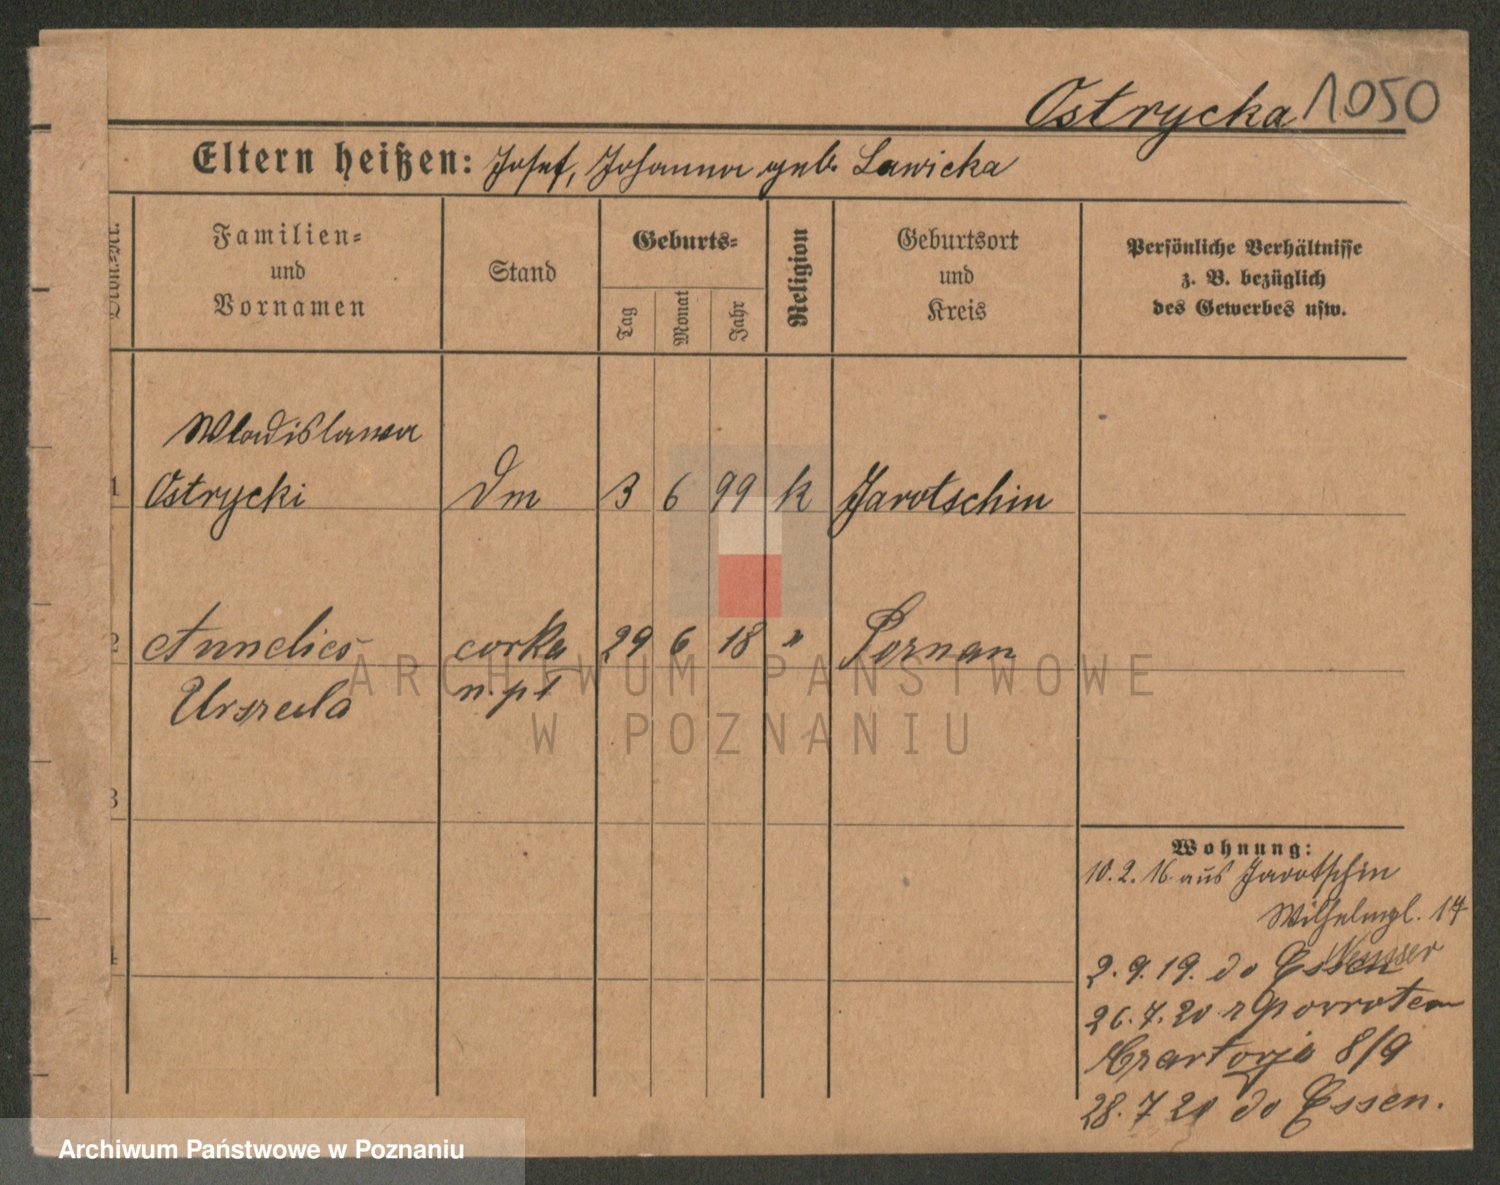 Ostrycka 1050
Eltern heißen: Josef, Johanna geb. Lawicka
Familien- und Vornamen
Stand
Geburts-
Tag
Monat
Jahr
Religion
Geburtsort und Kreis
Persönliche Verhältnisse z. B. bezüglich des Gewerbes usw.
Wladislawa
1 Ostrycki Dm 3 6 99 k Jarotschin
2 Annelies corka 29 6 18 " Poznan
Urszula n.pt
3
4
Wohnung:
10.2.16 aus Jarotschin
Wilhelmpl. 17
2.9.19. do Essen
26.7.20 z powrotem
Czartorja 8/9
28.7.20 do Essen.
ARCHIWUM PAŃSTWOWE
W POZNANIU
Archiwum Państwowe w Poznaniu